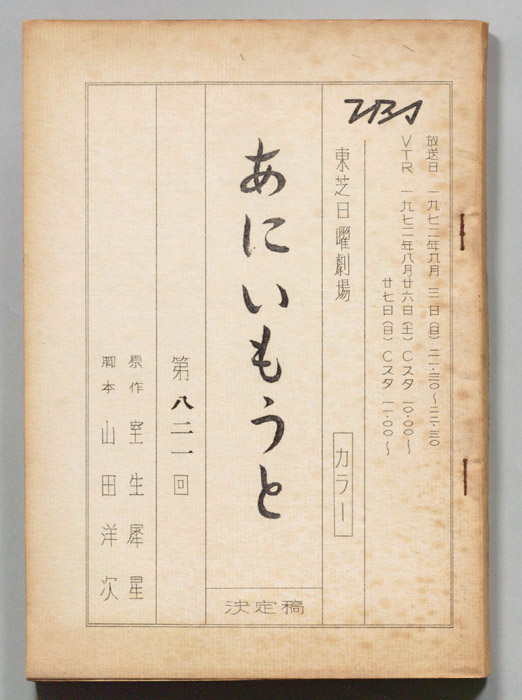 放送日 一九七二年九月 三日(日)二一・三〇〜二二・三〇
VTR 一九七二年八月廿六日(土)Cスタ 一〇・〇〇〜
廿七日(日)Cスタ 一一・〇〇〜
TBS
東芝日曜劇場 カラー
あにいもうと
決定稿
第八二一回
原作 室生犀星
脚本 山田洋次